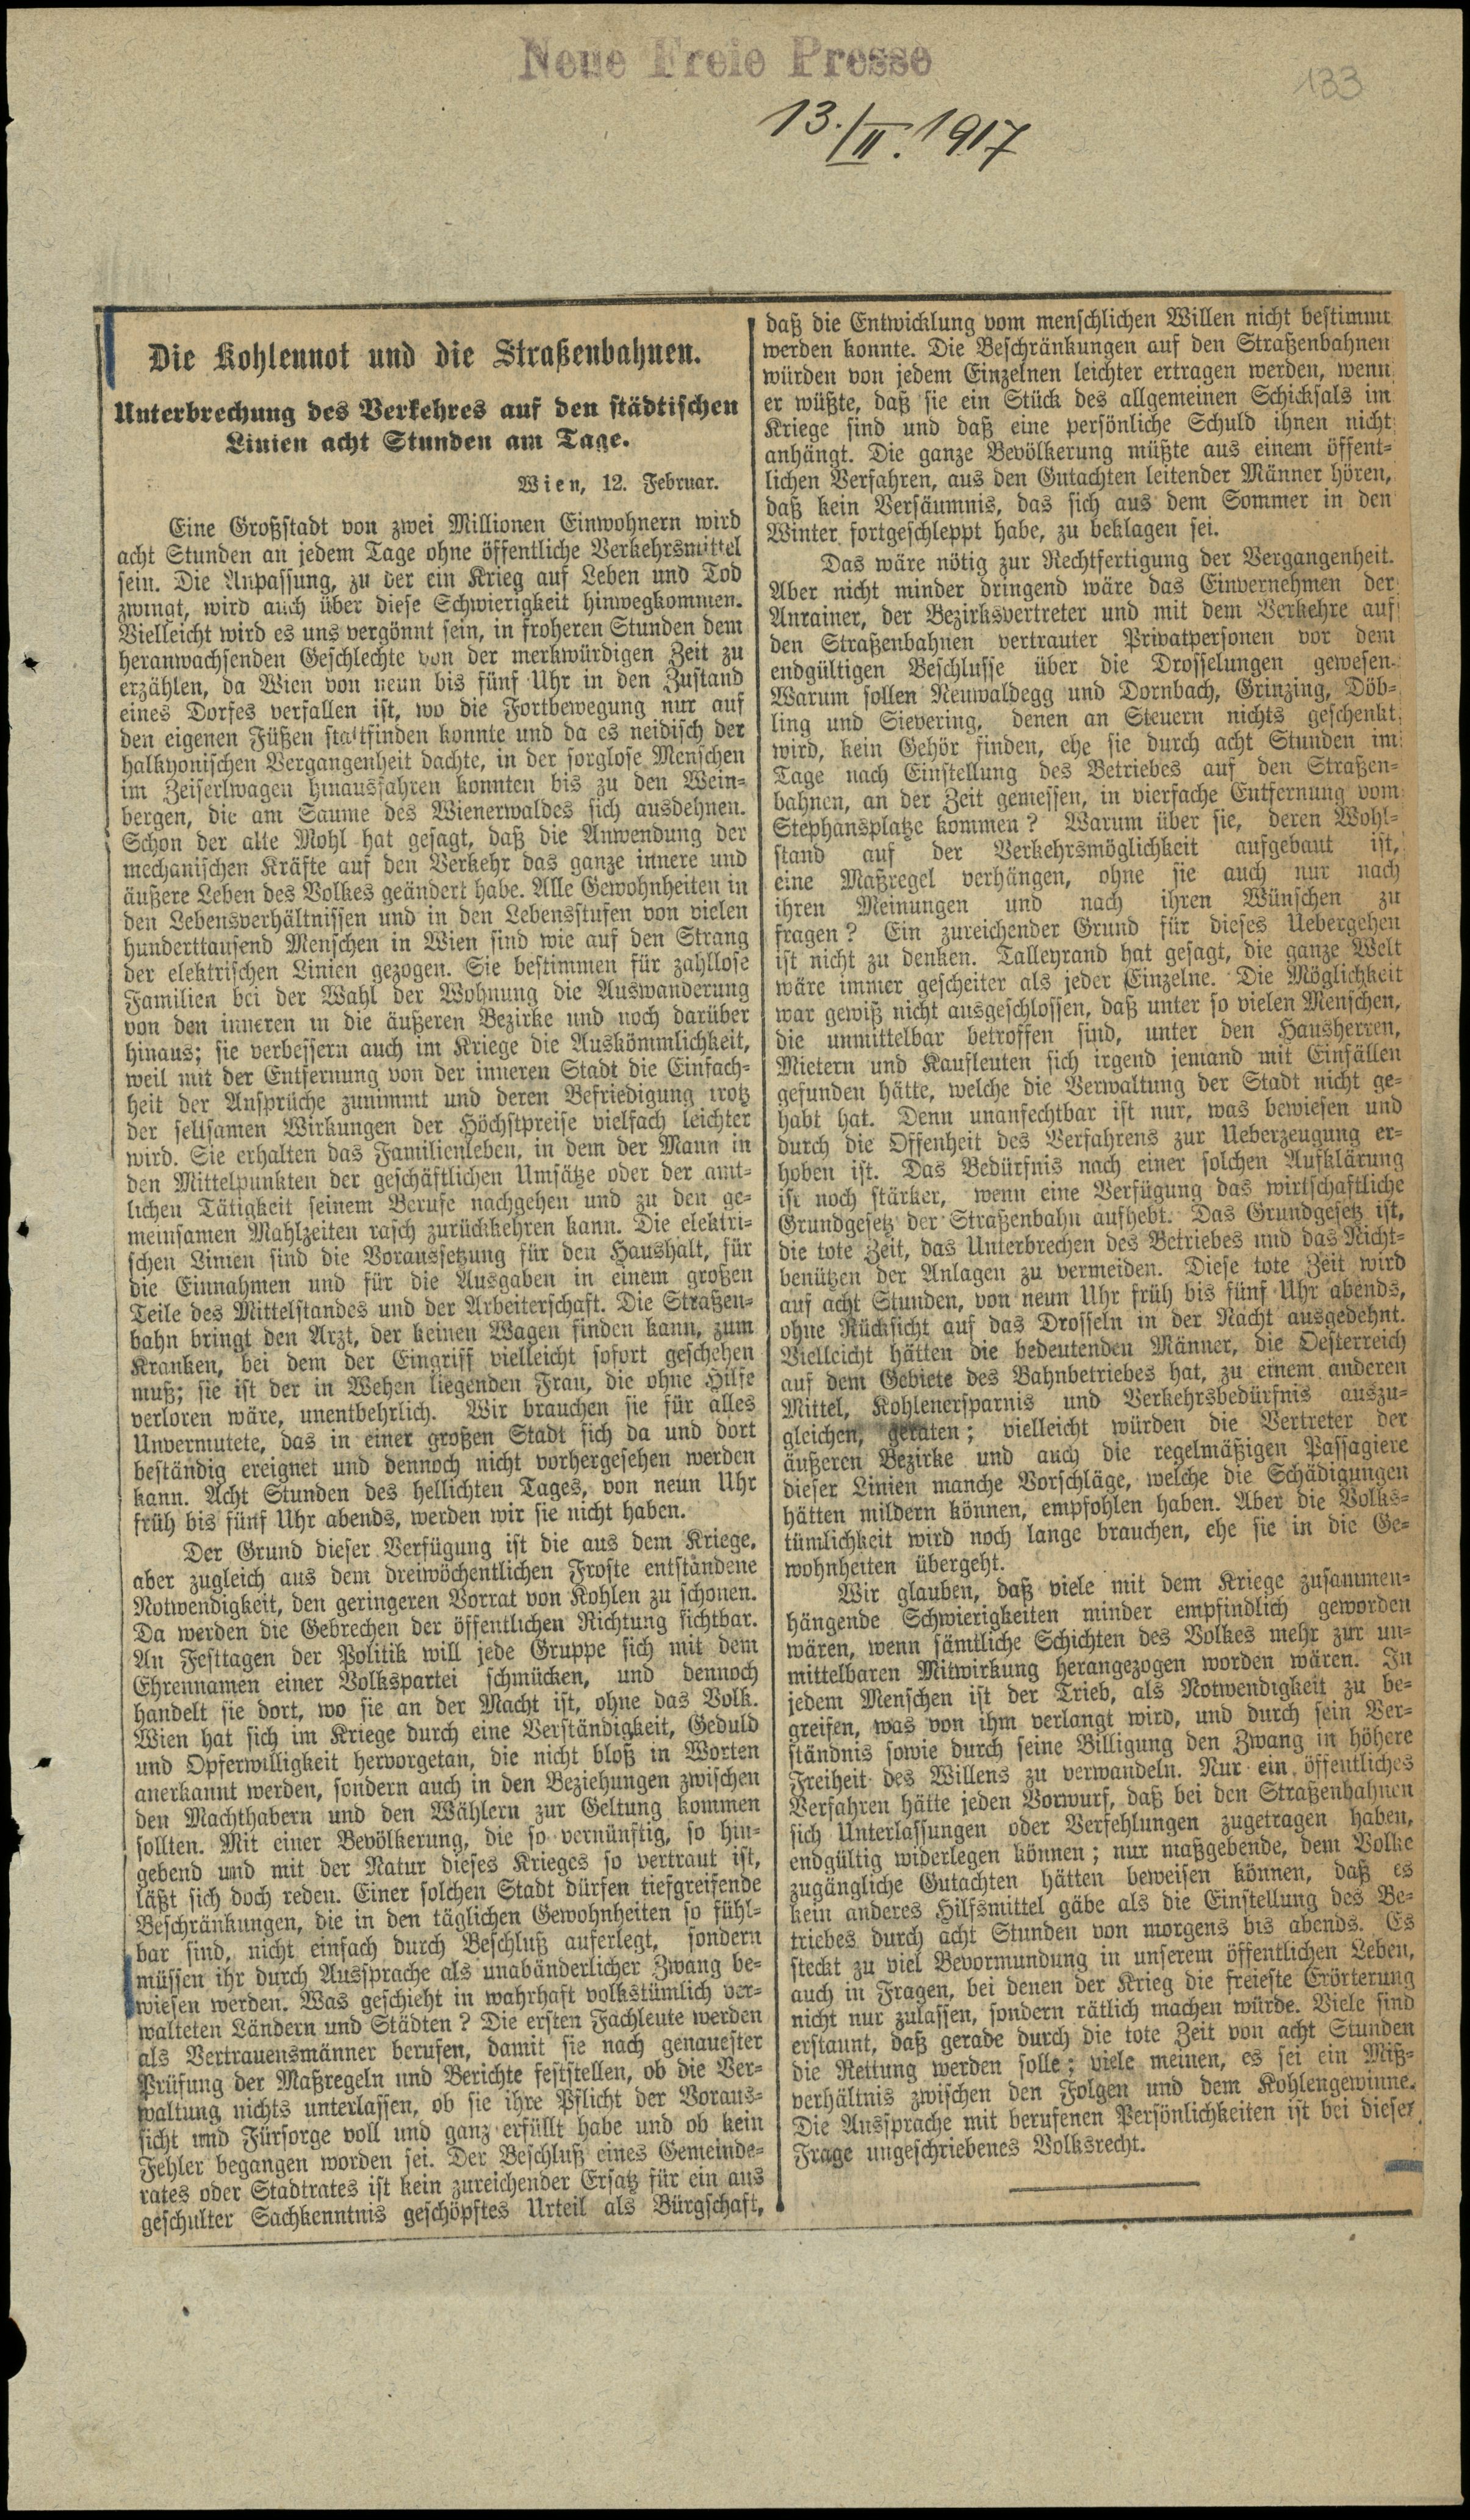 Neue Freie Presse
133
13./II. 1917
Die Kohlennot und die Straßenbahnen.
Unterbrechung des Verkehres auf den städtischen
Linien acht Stunden am Tage.
Wien, 12. Februar.
Eine Großstadt von zwei Millionen Einwohnern wird
acht Stunden an jedem Tage ohne öffentliche Verkehrsmittel
sein. Die Anpassung, zu der ein Krieg auf Leben und Tod
zwingt, wird auch über diese Schwierigkeit hinwegkommen.
Vielleicht wird es uns vergönnt sein, in froheren Stunden dem
heranwachsenden Geschlechte von der merkwürdigen Zeit zu
erzählen, da Wien von neun bis fünf Uhr in den Zustand
eines Dorfes verfallen ist, wo die Fortbewegung nur auf
den eigenen Füßen stattfinden konnte und da es neidisch der
halkyonischen Vergangenheit dachte, in der sorglose Menschen
im Zeiserlwagen hinausfahren konnten bis zu den Wein-
bergen, die am Saume des Wienerwaldes sich ausdehnen.
Schon der alte Mohl hat gesagt, daß die Anwendung der
mechanischen Kräfte auf den Verkehr das ganze innere und
äußere Leben des Volkes geändert habe. Alle Gewohnheiten in
den Lebensverhältnissen und in den Lebensstufen von vielen
hunderttausend Menschen in Wien sind wie auf den Strang
der elektrischen Linien gezogen. Sie bestimmen für zahllose
Familien bei der Wahl der Wohnung die Auswanderung
von den inneren in die äußeren Bezirke und noch darüber
hinaus; sie verbessern auch im Kriege die Auskömmlichkeit,
weil mit der Entfernung von der inneren Stadt die Einfach-
heit der Ansprüche zunimmt und deren Befriedigung trotz
der seltsamen Wirkungen der Höchstpreise vielfach leichter
wird. Sie erhalten das Familienleben, in dem der Mann in
den Mittelpunkten der geschäftlichen Umsätze oder der amt-
lichen Tätigkeit seinem Berufe nachgehen und zu den ge-
meinsamen Mahlzeiten rasch zurückkehren kann. Die elektri-
schen Linien sind die Voraussetzung für den Haushalt, für
die Einnahmen und für die Ausgaben in einem großen
Teile des Mittelstandes und der Arbeiterschaft. Die Straßen-
bahn bringt den Arzt, der keinen Wagen finden kann, zum
Kranken, bei dem der Eingriff vielleicht sofort geschehen
muß; sie ist der in Wehen liegenden Frau, die ohne Hilfe
verloren wäre, unentbehrlich. Wir brauchen sie für alles
Unvermutete, das in einer großen Stadt sich da und dort
beständig ereignet und dennoch nicht vorhergesehen werden
kann. Acht Stunden des hellichten Tages, von neun Uhr
früh bis fünf Uhr abends, werden wir sie nicht haben.
Der Grund dieser Verfügung ist die aus dem Kriege,
aber zugleich aus dem dreiwöchentlichen Froste entstandene
Notwendigkeit, den geringeren Vorrat von Kohlen zu schonen.
Da werden die Gebrechen der öffentlichen Richtung sichtbar.
An Festtagen der Politik will jede Gruppe sich mit dem
Ehrennamen einer Volkspartei schmücken, und dennoch
handelt sie dort, wo sie an der Macht ist, ohne das Volk.
Wien hat sich im Kriege durch eine Verständigkeit, Geduld
und Opferwilligkeit hervorgetan, die nicht bloß in Worten
anerkannt werden, sondern auch in den Beziehungen zwischen
den Machthabern und den Wählern zur Geltung kommen
sollten. Mit einer Bevölkerung, die so vernünftig, so hin-
gebend und mit der Natur dieses Krieges so vertraut ist,
läßt sich doch reden. Einer solchen Stadt dürfen tiefgreifende
Beschränkungen, die in den täglichen Gewohnheiten so fühl-
bar sind, nicht einfach durch Beschluß auferlegt, sondern
müssen ihr durch Aussprache als unabänderlicher Zwang be-
wiesen werden. Was geschieht in wahrhaft volkstümlich ver-
walteten Ländern und Städten? Die ersten Fachleute werden
als Vertrauensmänner berufen, damit sie nach genauester
Prüfung der Maßregeln und Berichte feststellen, ob die Ver-
waltung nichts unterlassen, ob sie ihre Pflicht der Voraus-
sicht und Fürsorge voll und ganz erfüllt habe und ob kein
Fehler begangen worden sei. Der Beschluß eines Gemeinde-
rates oder Stadtrates ist kein zureichender Ersatz für ein aus
geschulter Sachkenntnis geschöpftes Urteil als Bürgschaft,
daß die Entwicklung vom menschlichen Willen nicht bestimmt
werden konnte. Die Beschränkungen auf den Straßenbahnen
würden von jedem Einzelnen leichter ertragen werden, wenn
er wüßte, daß sie ein Stück des allgemeinen Schicksals im
Kriege sind und daß eine persönliche Schuld ihnen nicht
anhängt. Die ganze Bevölkerung müßte aus einem öffent-
lichen Verfahren, aus den Gutachten leitender Männer hören,
daß kein Versäumnis, das sich aus dem Sommer in den
Winter fortgeschleppt habe, zu beklagen sei.
Das wäre nötig zur Rechtfertigung der Vergangenheit.
Aber nicht minder dringend wäre das Einvernehmen der
Anrainer, der Bezirksvertreter und mit dem Verkehre auf
den Straßenbahnen vertrauter Privatpersonen vor dem
endgültigen Beschlusse über die Drosselungen gewesen.
Warum sollen Neuwaldegg und Dornbach, Grinzing, Döb-
ling und Sievering, denen an Steuern nichts geschenkt
wird, kein Gehör finden, ehe sie durch acht Stunden im
Tage nach Einstellung des Betriebes auf den Straßen-
bahnen, an der Zeit gemessen, in vierfache Entfernung vom
Stephansplatze kommen? Warum über sie, deren Wohl-
stand auf der Verkehrsmöglichkeit aufgebaut ist,
eine Maßregel verhängen, ohne sie auch nur nach
ihren Meinungen und nach ihren Wünschen zu
fragen? Ein zureichender Grund für dieses Uebergehen
ist nicht zu denken. Talleyrand hat gesagt, die ganze Welt
wäre immer gescheiter als jeder Einzelne. Die Möglichkeit
war gewiß nicht ausgeschlossen, daß unter so vielen Menschen,
die unmittelbar betroffen sind, unter den Hausherren,
Mietern und Kaufleuten sich irgend jemand mit Einfällen
gefunden hätte, welche die Verwaltung der Stadt nicht ge-
habt hat. Denn unanfechtbar ist nur, was bewiesen und
durch die Offenheit des Verfahrens zur Ueberzeugung er-
hoben ist. Das Bedürfnis nach einer solchen Aufklärung
ist noch stärker, wenn eine Verfügung das wirtschaftliche
Grundgesetz der Straßenbahn aufhebt. Das Grundgesetz ist,
die tote Zeit, das Unterbrechen des Betriebes und das Nicht-
benützen der Anlagen zu vermeiden. Diese tote Zeit wird
auf acht Stunden, von neun Uhr früh bis fünf Uhr abends,
ohne Rücksicht auf das Drosseln in der Nacht ausgedehnt.
Vielleicht hätten die bedeutenden Männer, die Oesterreich
auf dem Gebiete des Bahnbetriebes hat, zu einem anderen
Mittel, Kohlenersparnis und Verkehrsbedürfnis auszu-
gleichen, geraten; vielleicht würden die Vertreter der
äußeren Bezirke und auch die regelmäßigen Passagiere
dieser Linien manche Vorschläge, welche die Schädigungen
hätten mildern können, empfohlen haben. Aber die Volks-
tümlichkeit wird noch lange brauchen, ehe sie in die Ge-
wohnheiten übergeht.
Wir glauben, daß viele mit dem Kriege zusammen-
hängende Schwierigkeiten minder empfindlich geworden
wären, wenn sämtliche Schichten des Volkes mehr zur un-
mittelbaren Mitwirkung herangezogen worden wären. In
jedem Menschen ist der Trieb, als Notwendigkeit zu be-
greifen, was von ihm verlangt wird, und durch sein Ver-
ständnis sowie durch seine Billigung den Zwang in höhere
Freiheit des Willens zu verwandeln. Nur ein öffentliches
Verfahren hätte jeden Vorwurf, daß bei den Straßenbahnen
sich Unterlassungen oder Verfehlungen zugetragen haben,
endgültig widerlegen können; nur maßgebende, dem Volke
zugängliche Gutachten hätten beweisen können, daß es
kein anderes Hilfsmittel gäbe als die Einstellung des Be-
triebes durch acht Stunden von morgens bis abends. Es
steckt zu viel Bevormundung in unserem öffentlichen Leben,
auch in Fragen, bei denen der Krieg die freieste Erörterung
nicht nur zulassen, sondern rätlich machen würde. Viele sind
erstaunt, daß gerade durch die tote Zeit von acht Stunden
die Rettung werden solle; viele meinen, es sei ein Miß-
verhältnis zwischen den Folgen und dem Kohlengewinne.
Die Aussprache mit berufenen Persönlichkeiten ist bei dieser
Frage ungeschriebenes Volksrecht.